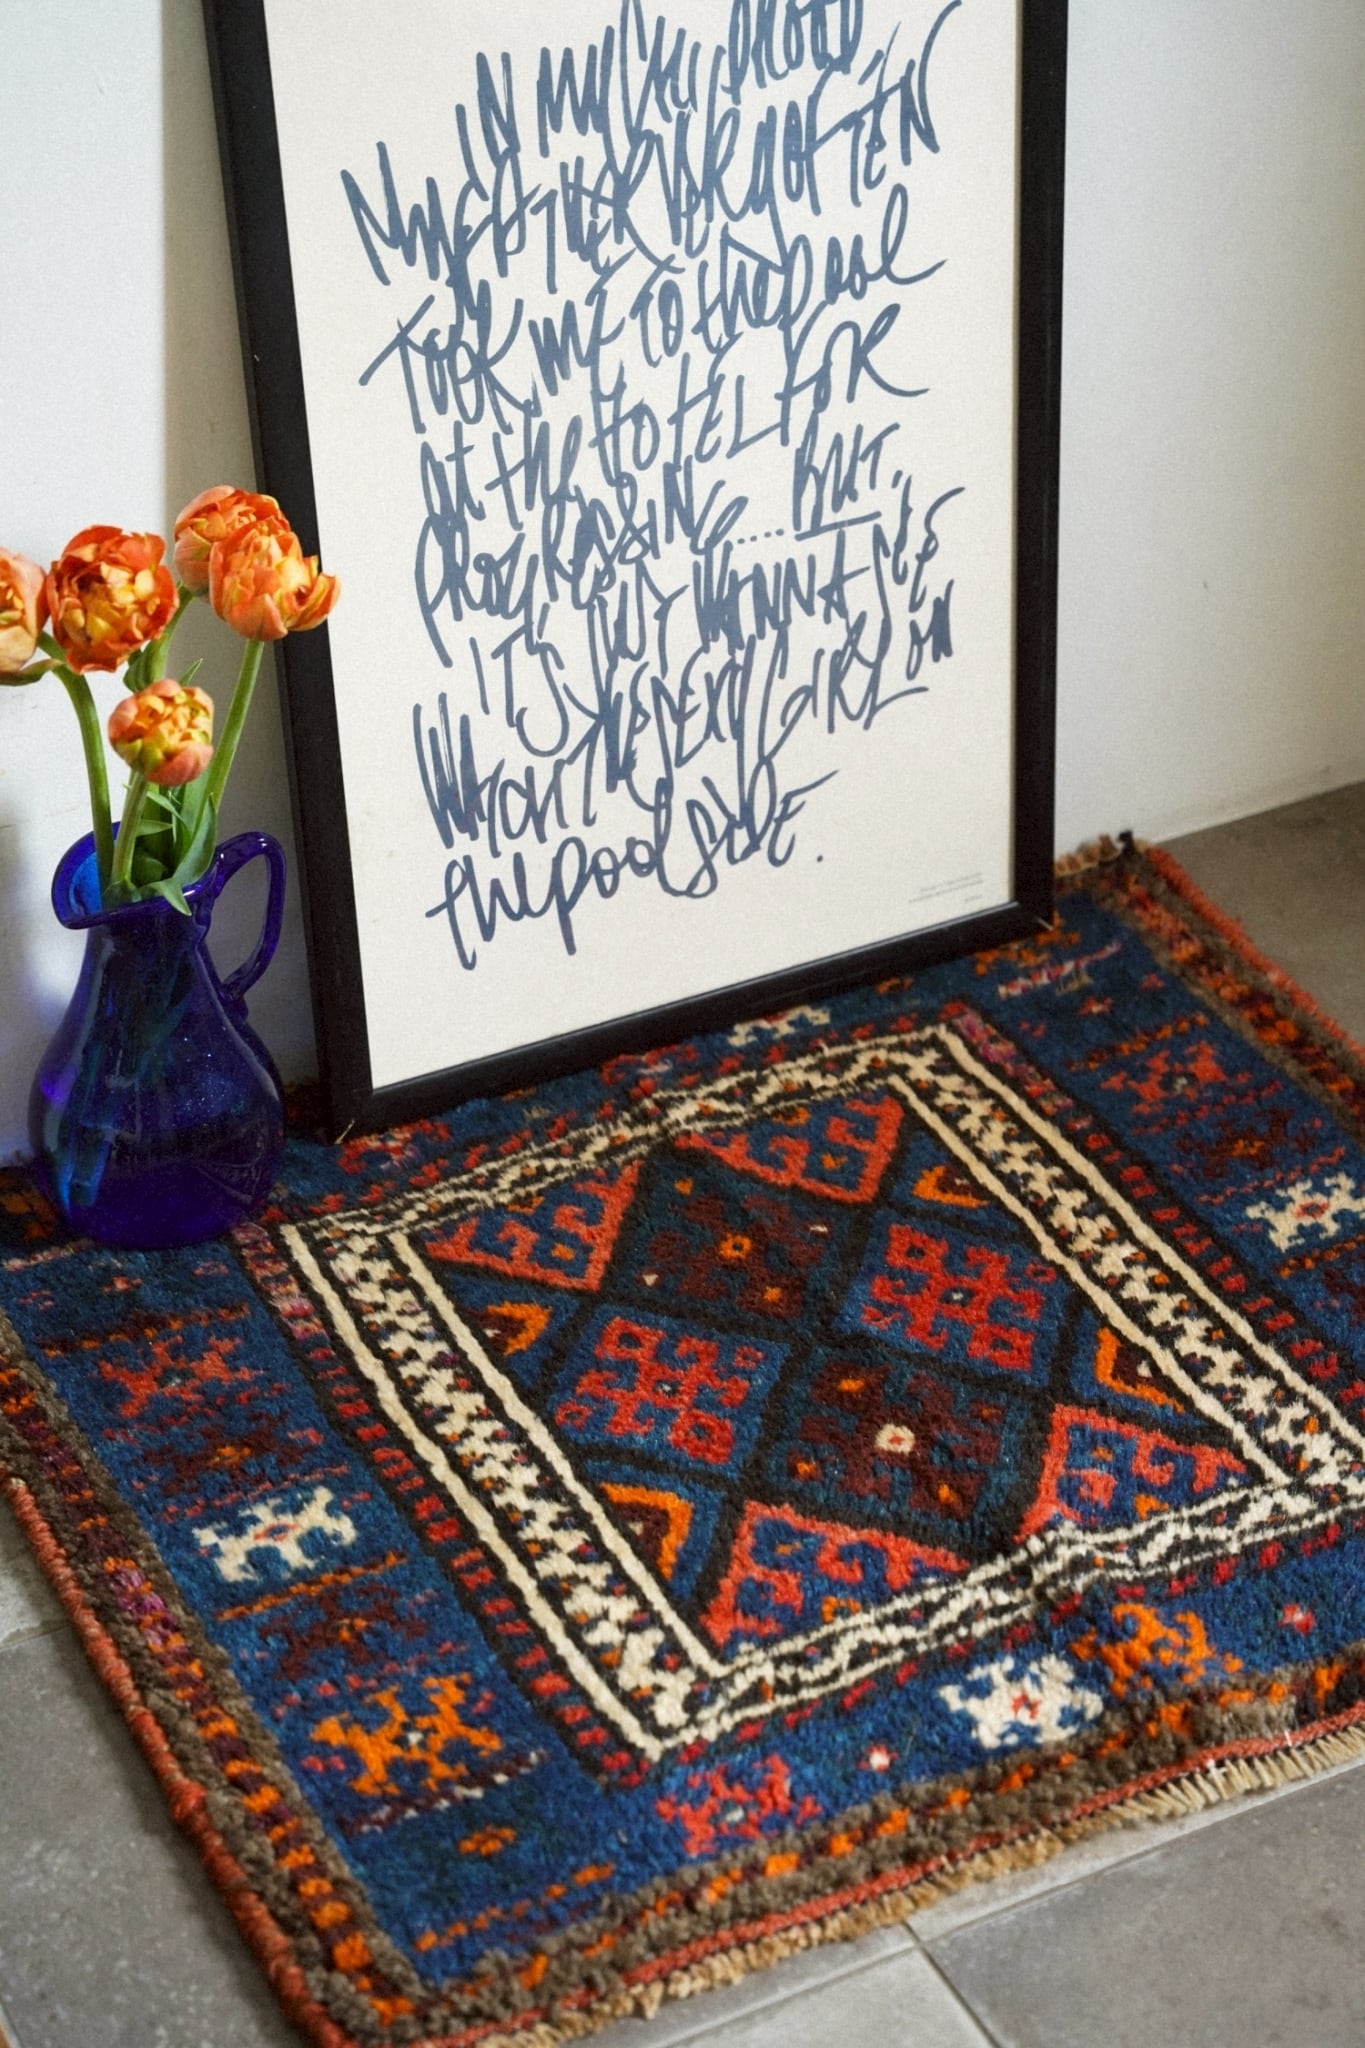 IN MY CHILDHOOD,
MY FATHER VERY OFTEN
TOOK ME TO the pool
At the HOTEL FOR
PROGRESSING ..... BUT,
IT'S JUST WANNA SEE
WATCH THE SEXY GIRL ON
the pool SIDE.